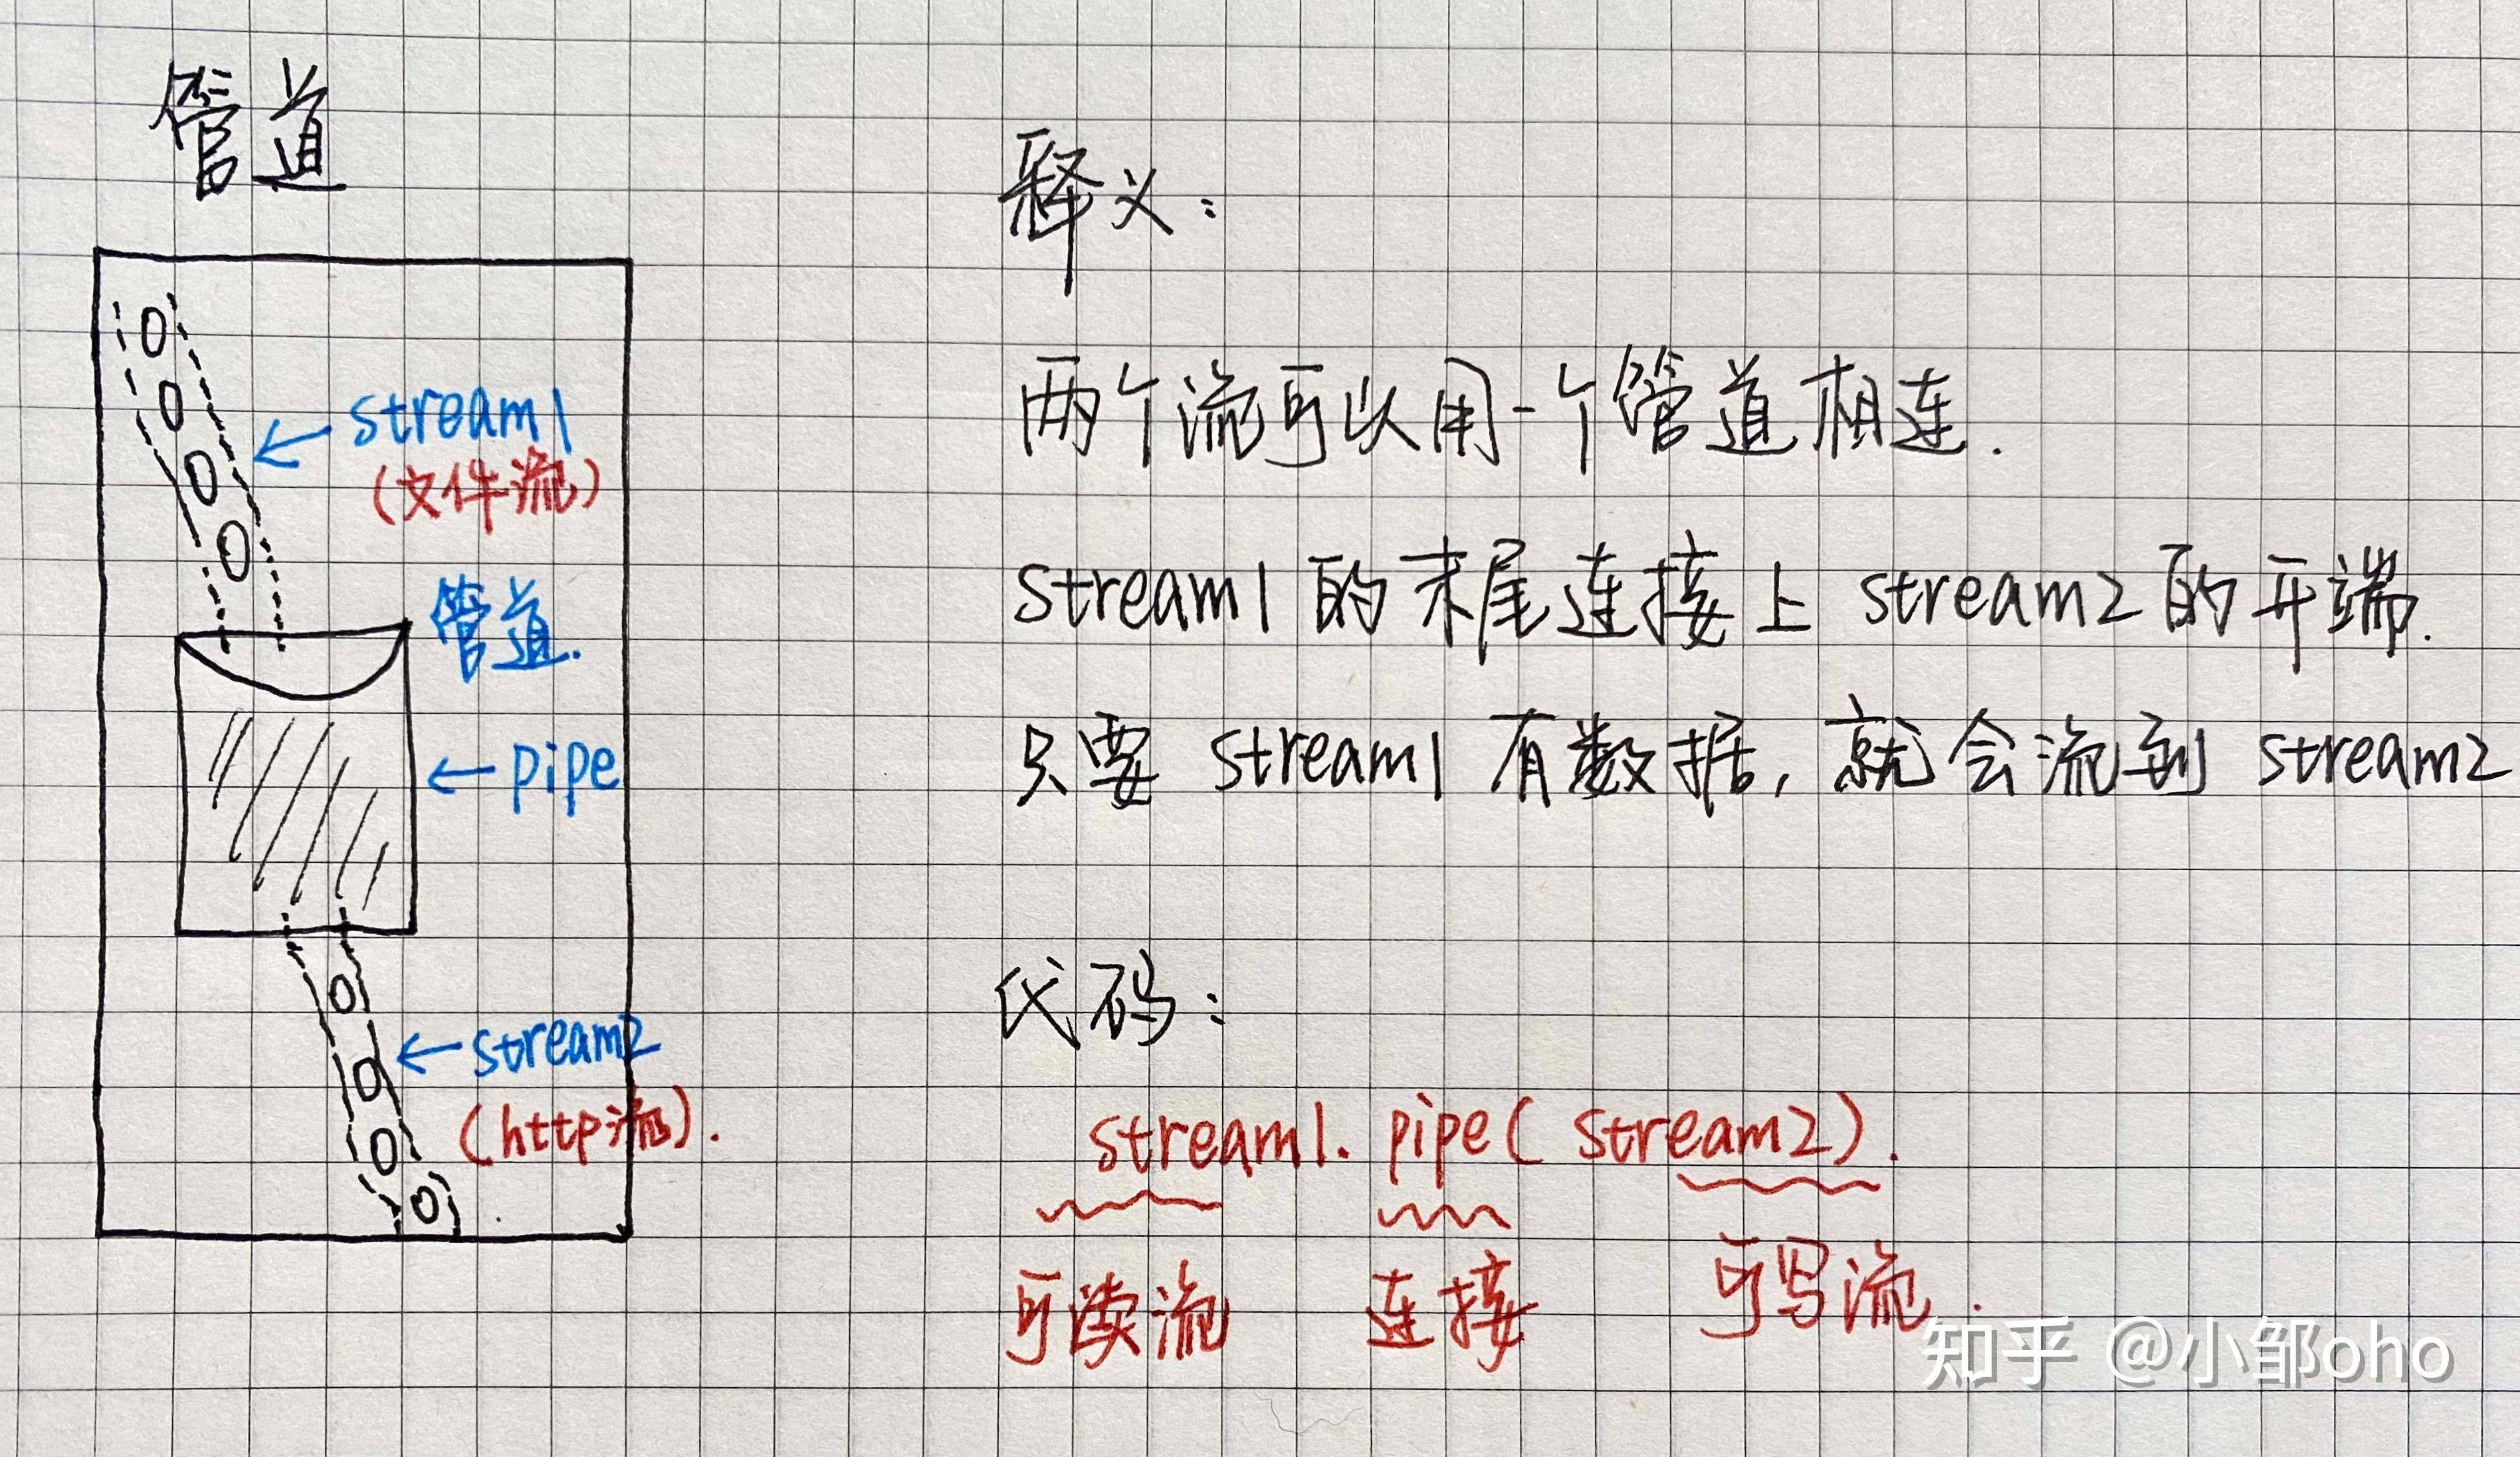 管道
stream1
(文件流)
管道.
pipe
stream2
(http流).
释义:
两个流可以用一个管道相连.
stream1 的末尾连接上 stream2 的开端.
只要 stream1 有数据, 就会流到 stream2
代码:
stream1. pipe( stream2).
可读流 连接 可写流.
知乎 @小邹oho